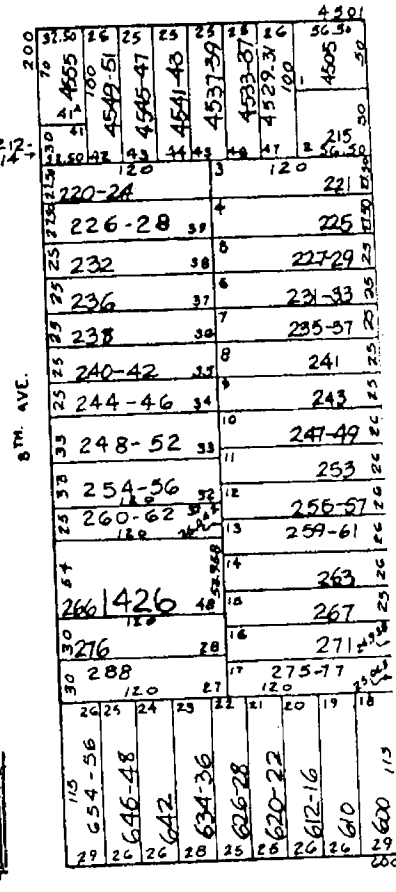 4501
200 32.50 26 25 25 25 25 26 56.50
70 4555 100 4549-51 4545-47 4541-43 4537-39 4533-37 4529-31 100 4505 50
41 41
212-14 30 50 215
32.50 42 43 44 45 46 47 2 56.50
120 3 120
27.50 220-24 221 27.50
27.50 226-28 39 4 225 27.50
25 232 38 5 227-29 25
25 236 37 6 231-33 25
25 238 36 7 235-37 25
25 240-42 35 8 241 25
25 244-46 34 9 243 25
33 248-52 33 10 247-49 26
8TH. AVE.
11 253 26
33 254-56 32 12 255-57 26
120
25 260-62 13 259-61 26
120
54 14 263 26
266 1426 48 15 267 25
120
30 276 28 16 271
30 288 27 17 275-77
120 120
26 25 24 23 22 21 20 19 18
115 654-56 646-48 642 634-36 626-28 620-22 612-16 610 600 115
29 26 26 28 25 26 26 26 29
600